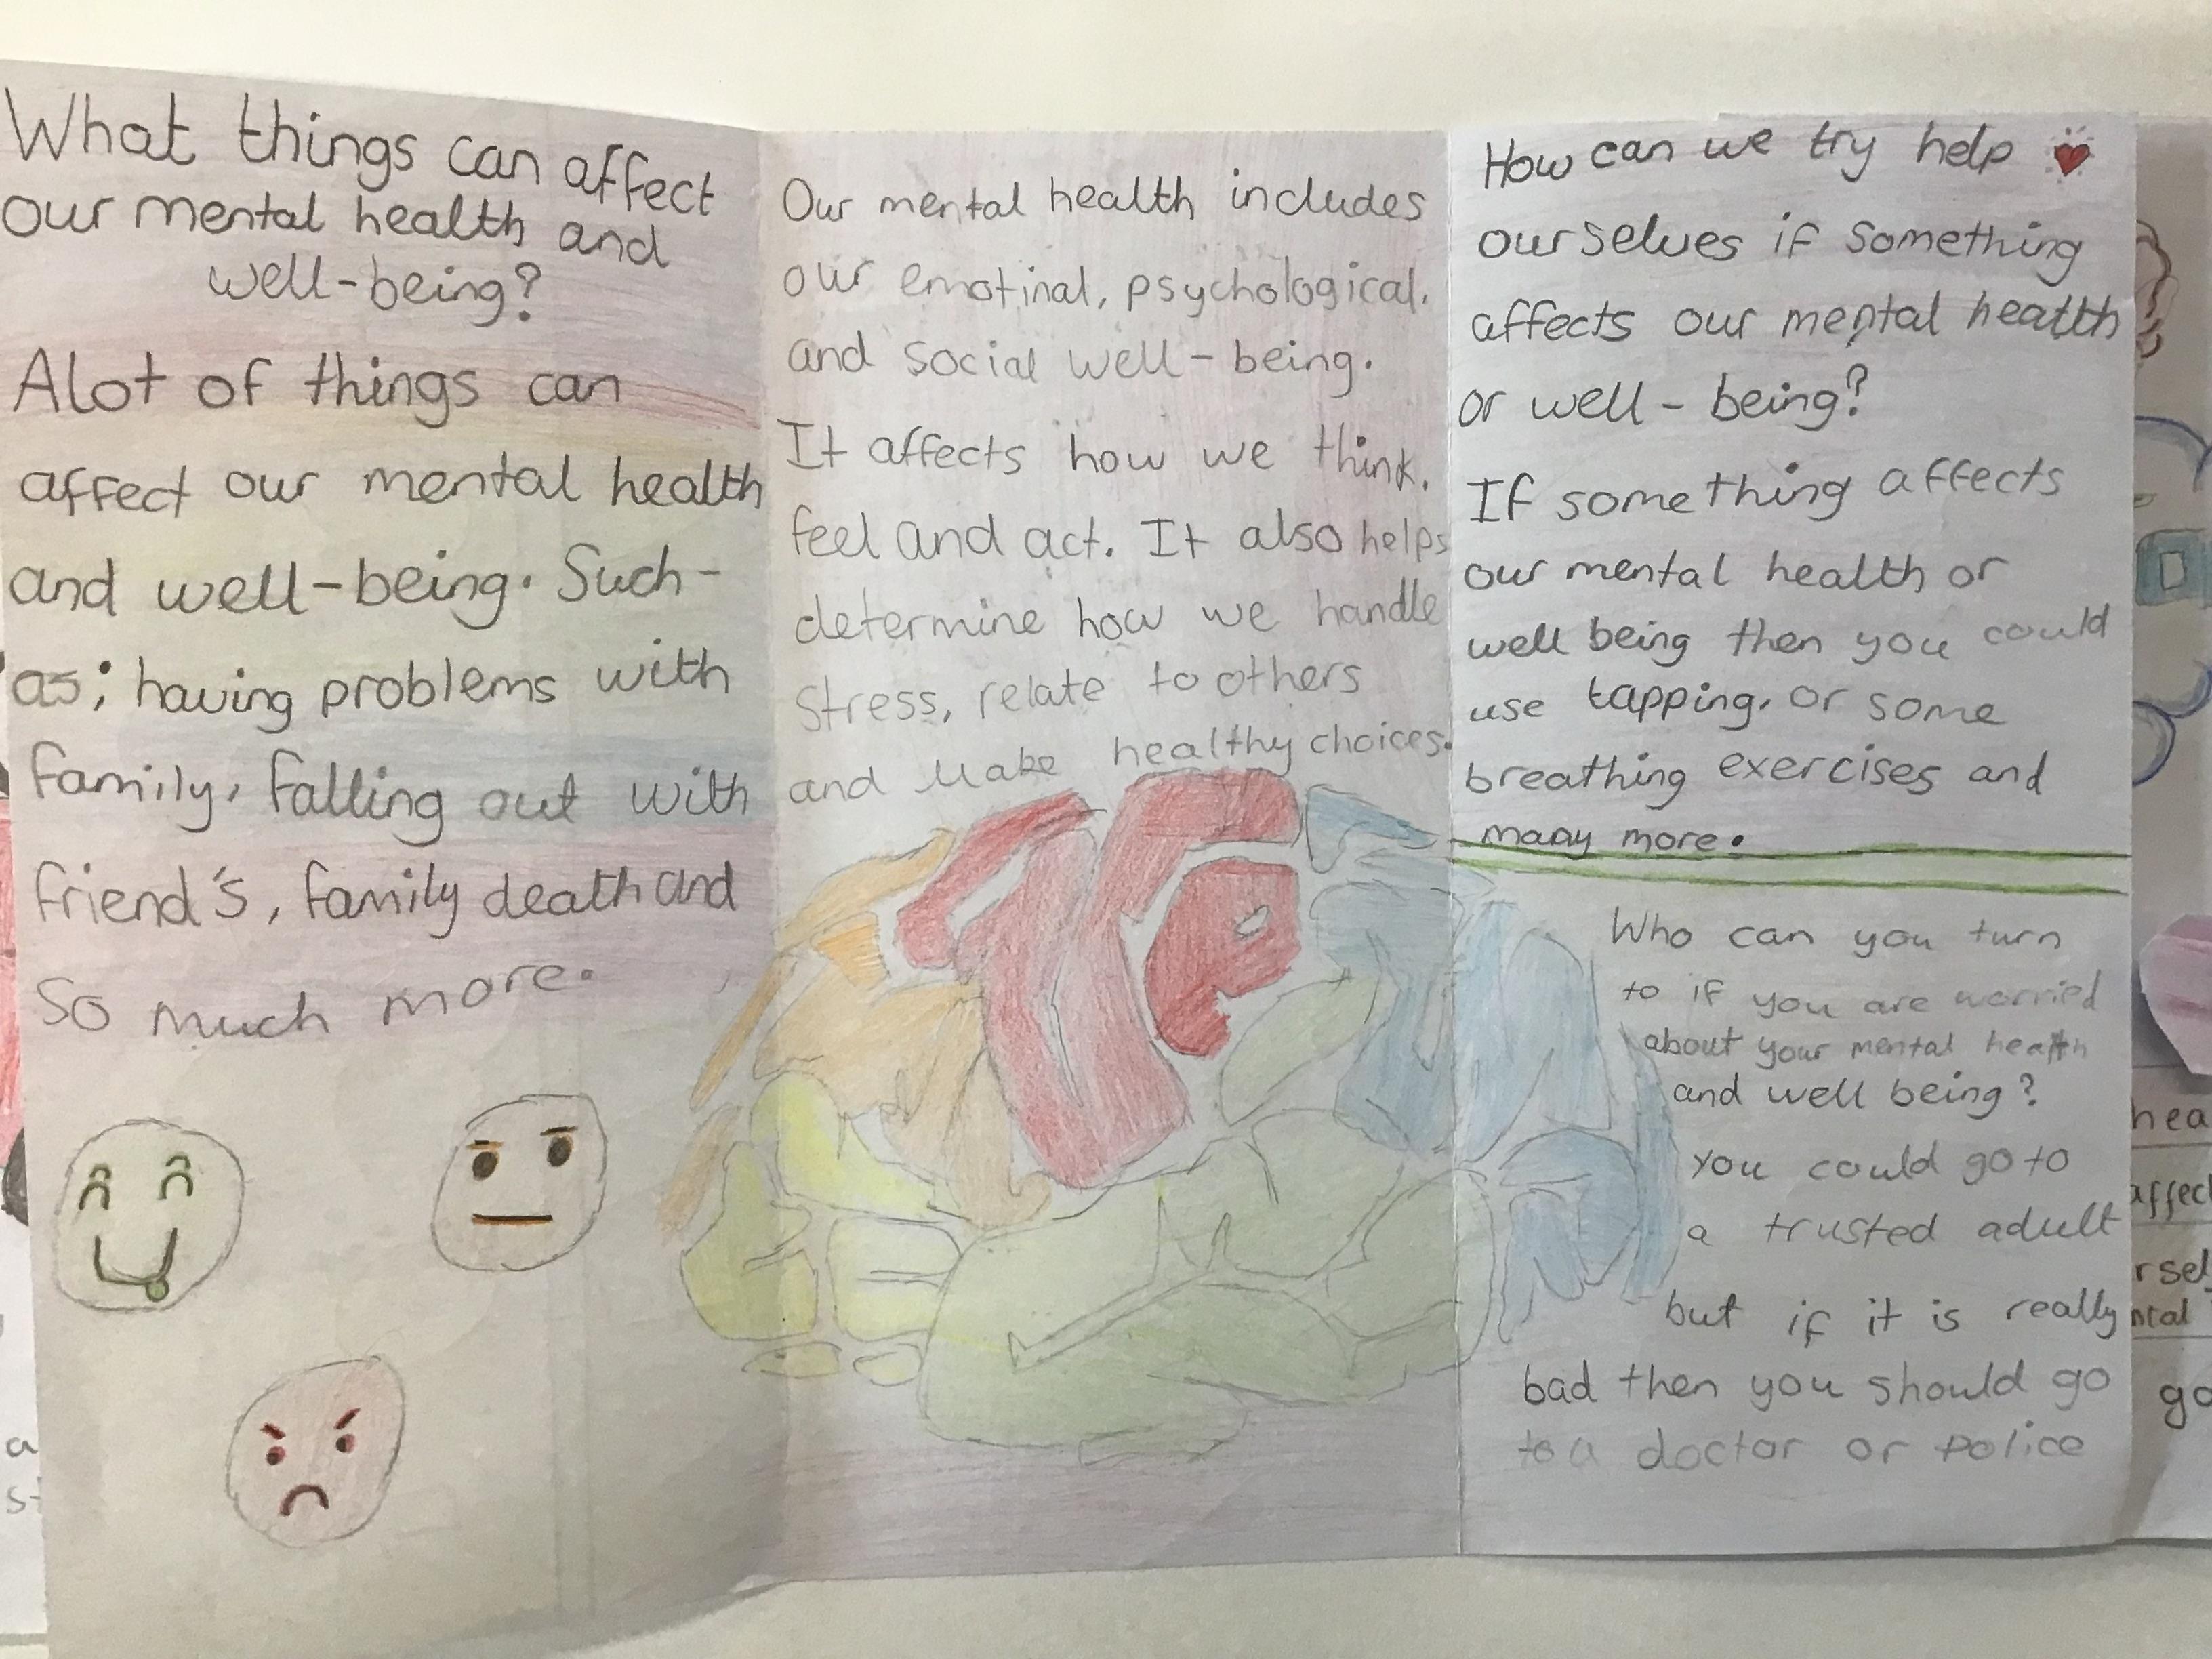 What things can affect
our mental health and
well-being?
Alot of things can
affect our mental health
and well-being. Such-
as; having problems with
family, falling out with
friend's, family death and
so much more.
Our mental health includes
our emotinal, psychological,
and social well-being.
It affects how we think,
feel and act. It also helps
determine how we handle
stress, relate to others
and make healthy choices.
How can we try help
ourselves if something
affects our mental health
or well-being?
If something affects
our mental health or
well being then you could
use tapping, or some
breathing exercises and
many more.
Who can you turn
to if you are worried
about your mental health
and well being?
You could go to
a trusted adult
but if it is really
bad then you should go
to a doctor or police
hea
affect
rsel
ntal
go
a
st